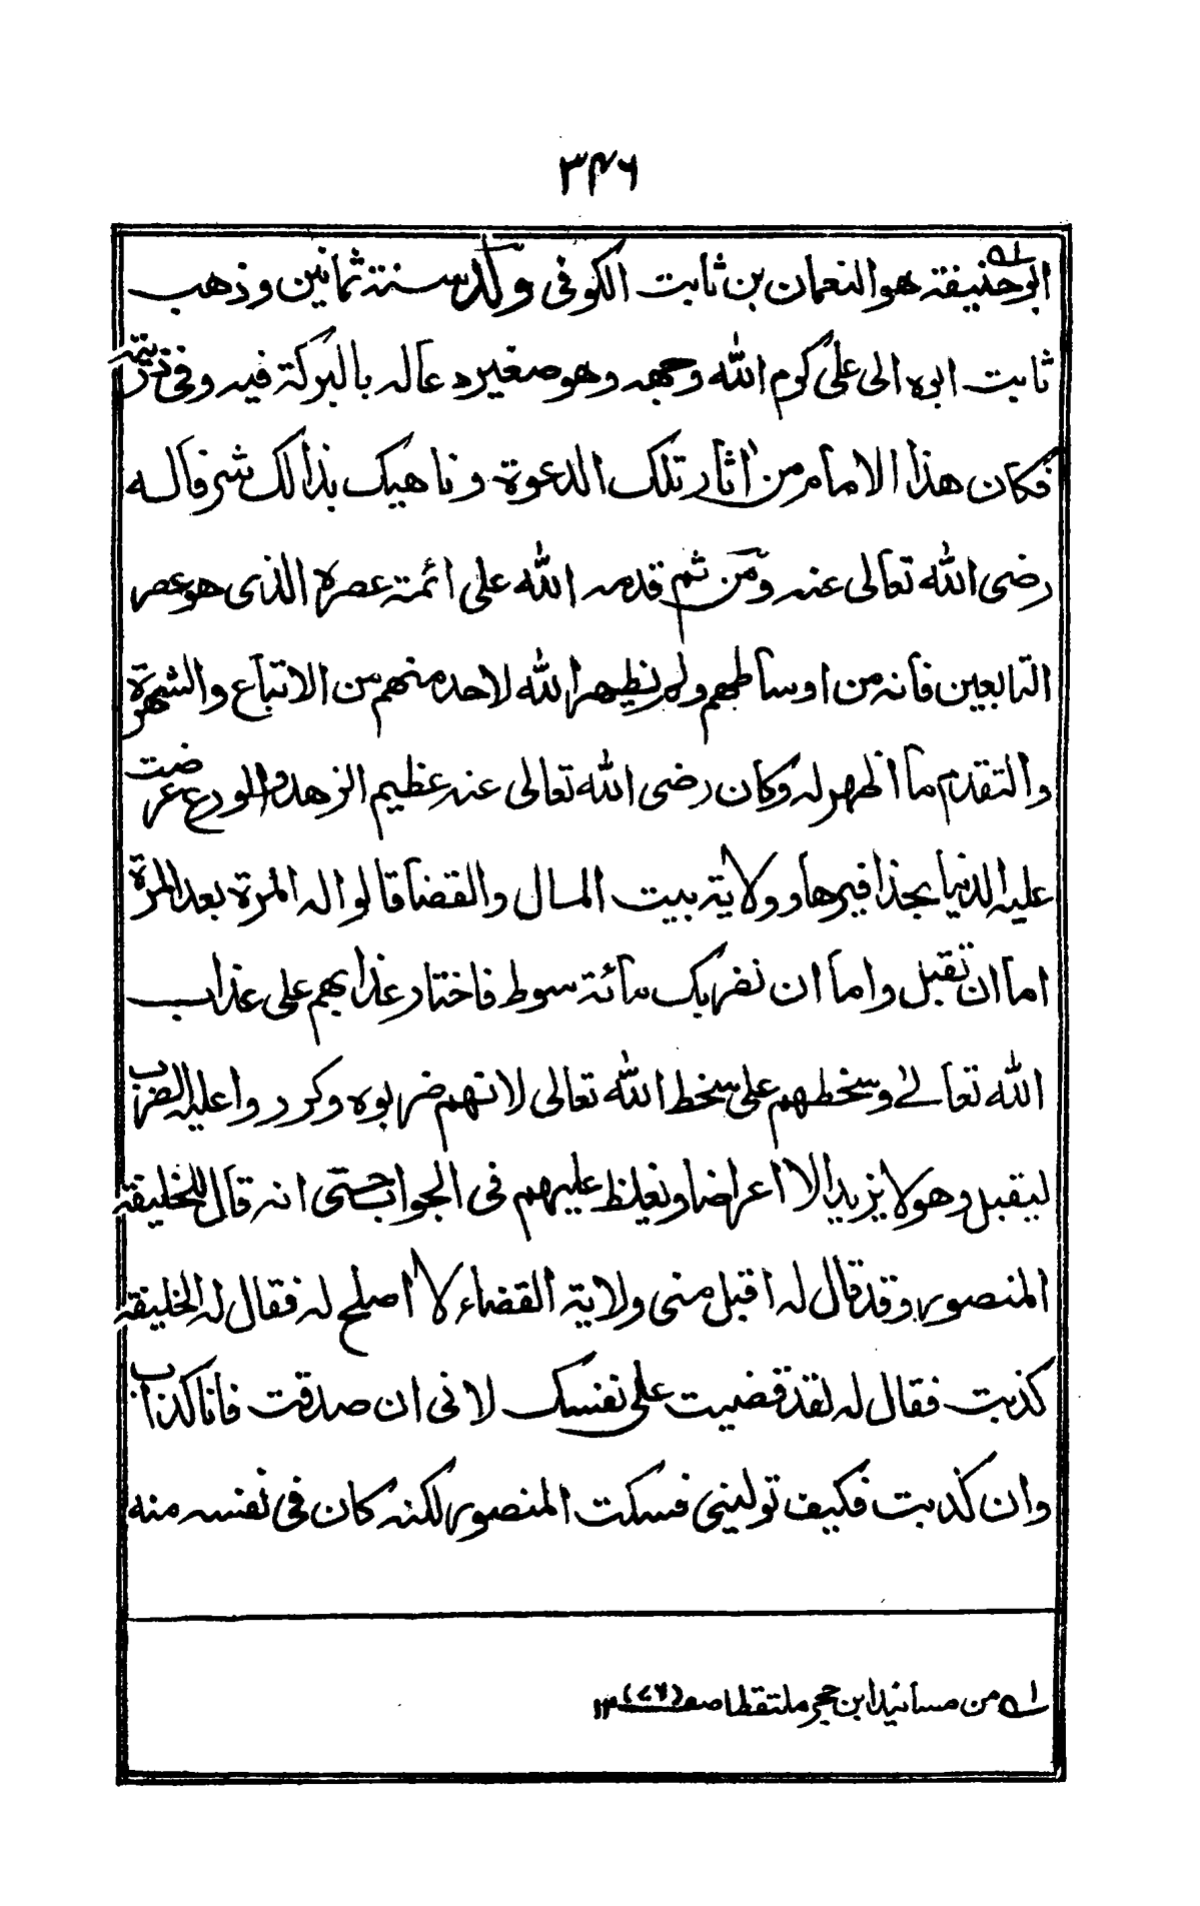 ۳۴۶
ابوحنیفة ؎۱ هو النعمان بن ثابت الکوفی ولد سنة ثمانین وذهب
ثابت ابوه الی علی کرم الله وجهه وهو صغیر دعا له بالبرکة فیه وفی ذریته
فکان هذا الامام من اٰثار تلک الدعوة وناهیک بذالک شرفا له
رضی الله تعالی عنه ومن ثم قدمه الله علی ائمة عصره الذی هو عصر
التابعین فانه من اوساطهم ولم یظهر الله لاحد منهم من الاتباع والشهرة
والتقدم ما اظهر له وکان رضی الله تعالی عنه عظیم الزهد والورع عرضت
علیه الدنیا بحذافیرها وولایة بیت المال والقضا قالوا له المرة بعد المرة
اما ان تقبل واما ان نضربک مائة سوط فاختار عذابهم علی عذاب
الله تعالےٰ وسخطهم علی سخط الله تعالی لانهم ضربوه وکرروا علیه الضرب
لیقبل وهو لا یزید الا اعراضا ویغلظ علیهم فی الجواب حتی انه قال للخلیفة
المنصور وقد قال له اقبل منی ولایة القضاء لا اصلح له فقال له الخلیفة
کذبت فقال له لقد قضیت علی نفسک لانی ان صدقت فانا کذاب
وان کذبت فکیف تولینی فسکت المنصور لکنه کان فی نفسه منه
؎۱ من مسانید ابن حجر ملتقطا صفـ (۷۶) ۱۲